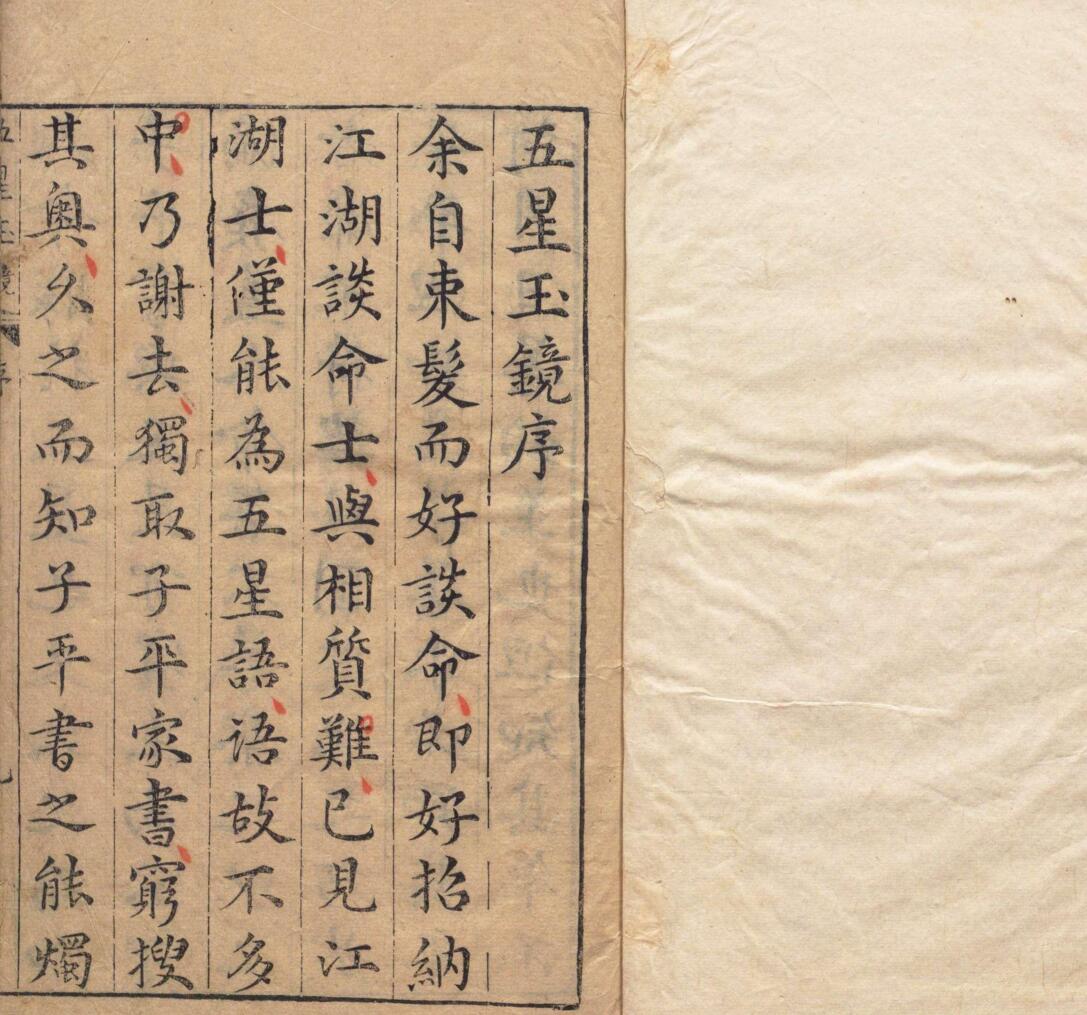 五星玉鏡序
余自束髮而好談命即好招納
江湖談命士與相質難已見江
湖士僅能為五星語語故不多
中乃謝去獨取子平家書窮搜
其奧久之而知子平書之能燭